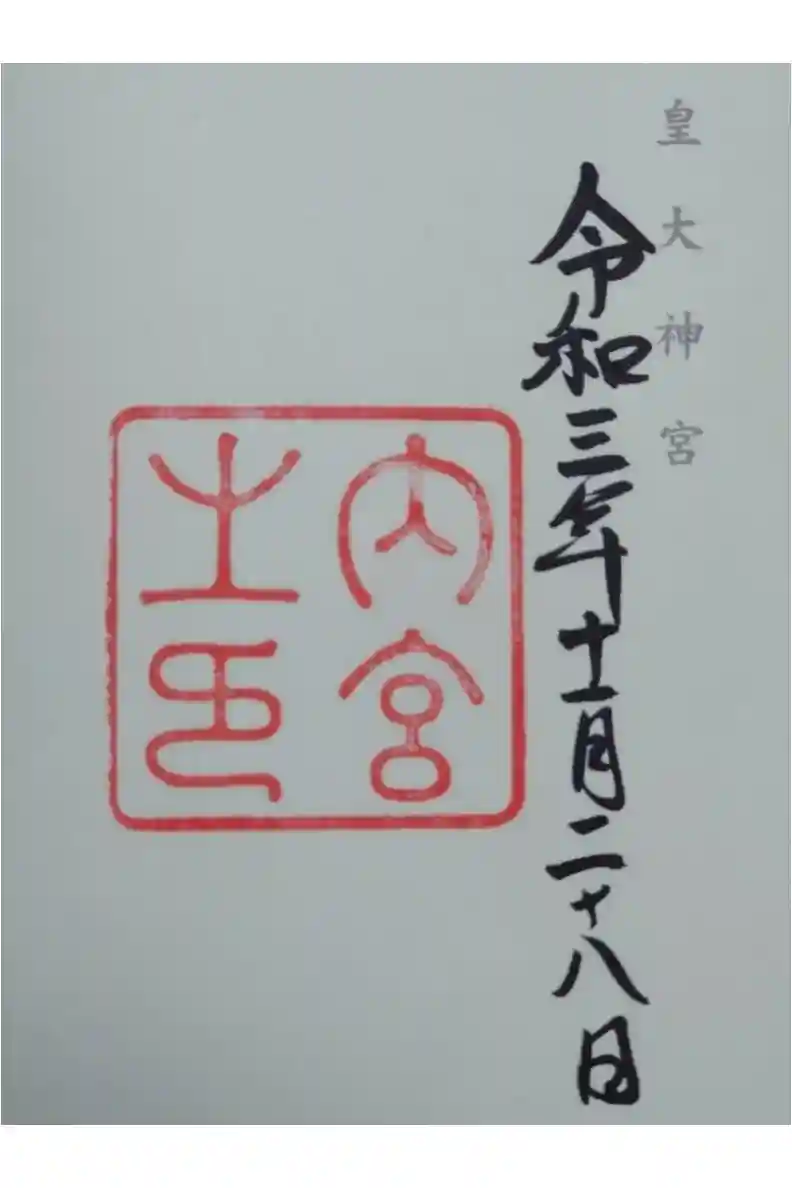 皇大神宮
令和三年十一月二十八日
内宮
之印